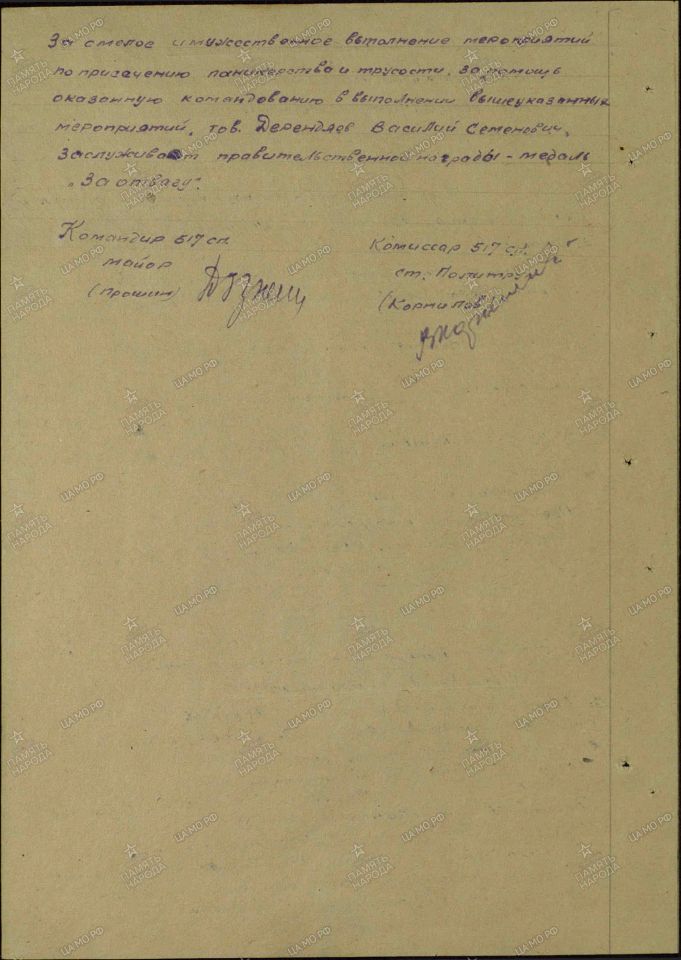 За смелое и мужественное выполнение мероприятий
по пресечению паникерства и трусости, за помощь
оказанную командованию в выполнении вышеуказанных
мероприятий, тов. Дерендяев Василий Семенович,
заслуживает правительственной награды – медаль
„За отвагу".
Командир 517 сп.
майор
(Прошин)
Комиссар 517 сп.
ст. Политрук
(Корнилов)
ПАМЯТЬ НАРОДА
ЦА МО РФ